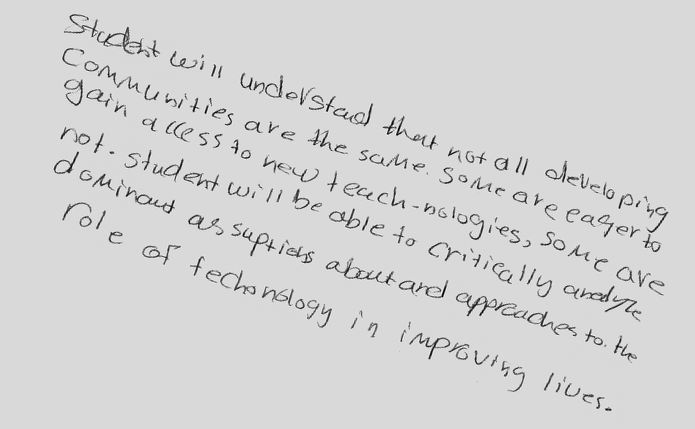 Student will understad that not all developing
Communities are the same. Some are eager to
gain access to new teach-nologies, some are
not. student will be able to critically analyze
dominant assuptions about and approaches to the
role of techonology in improving lives.